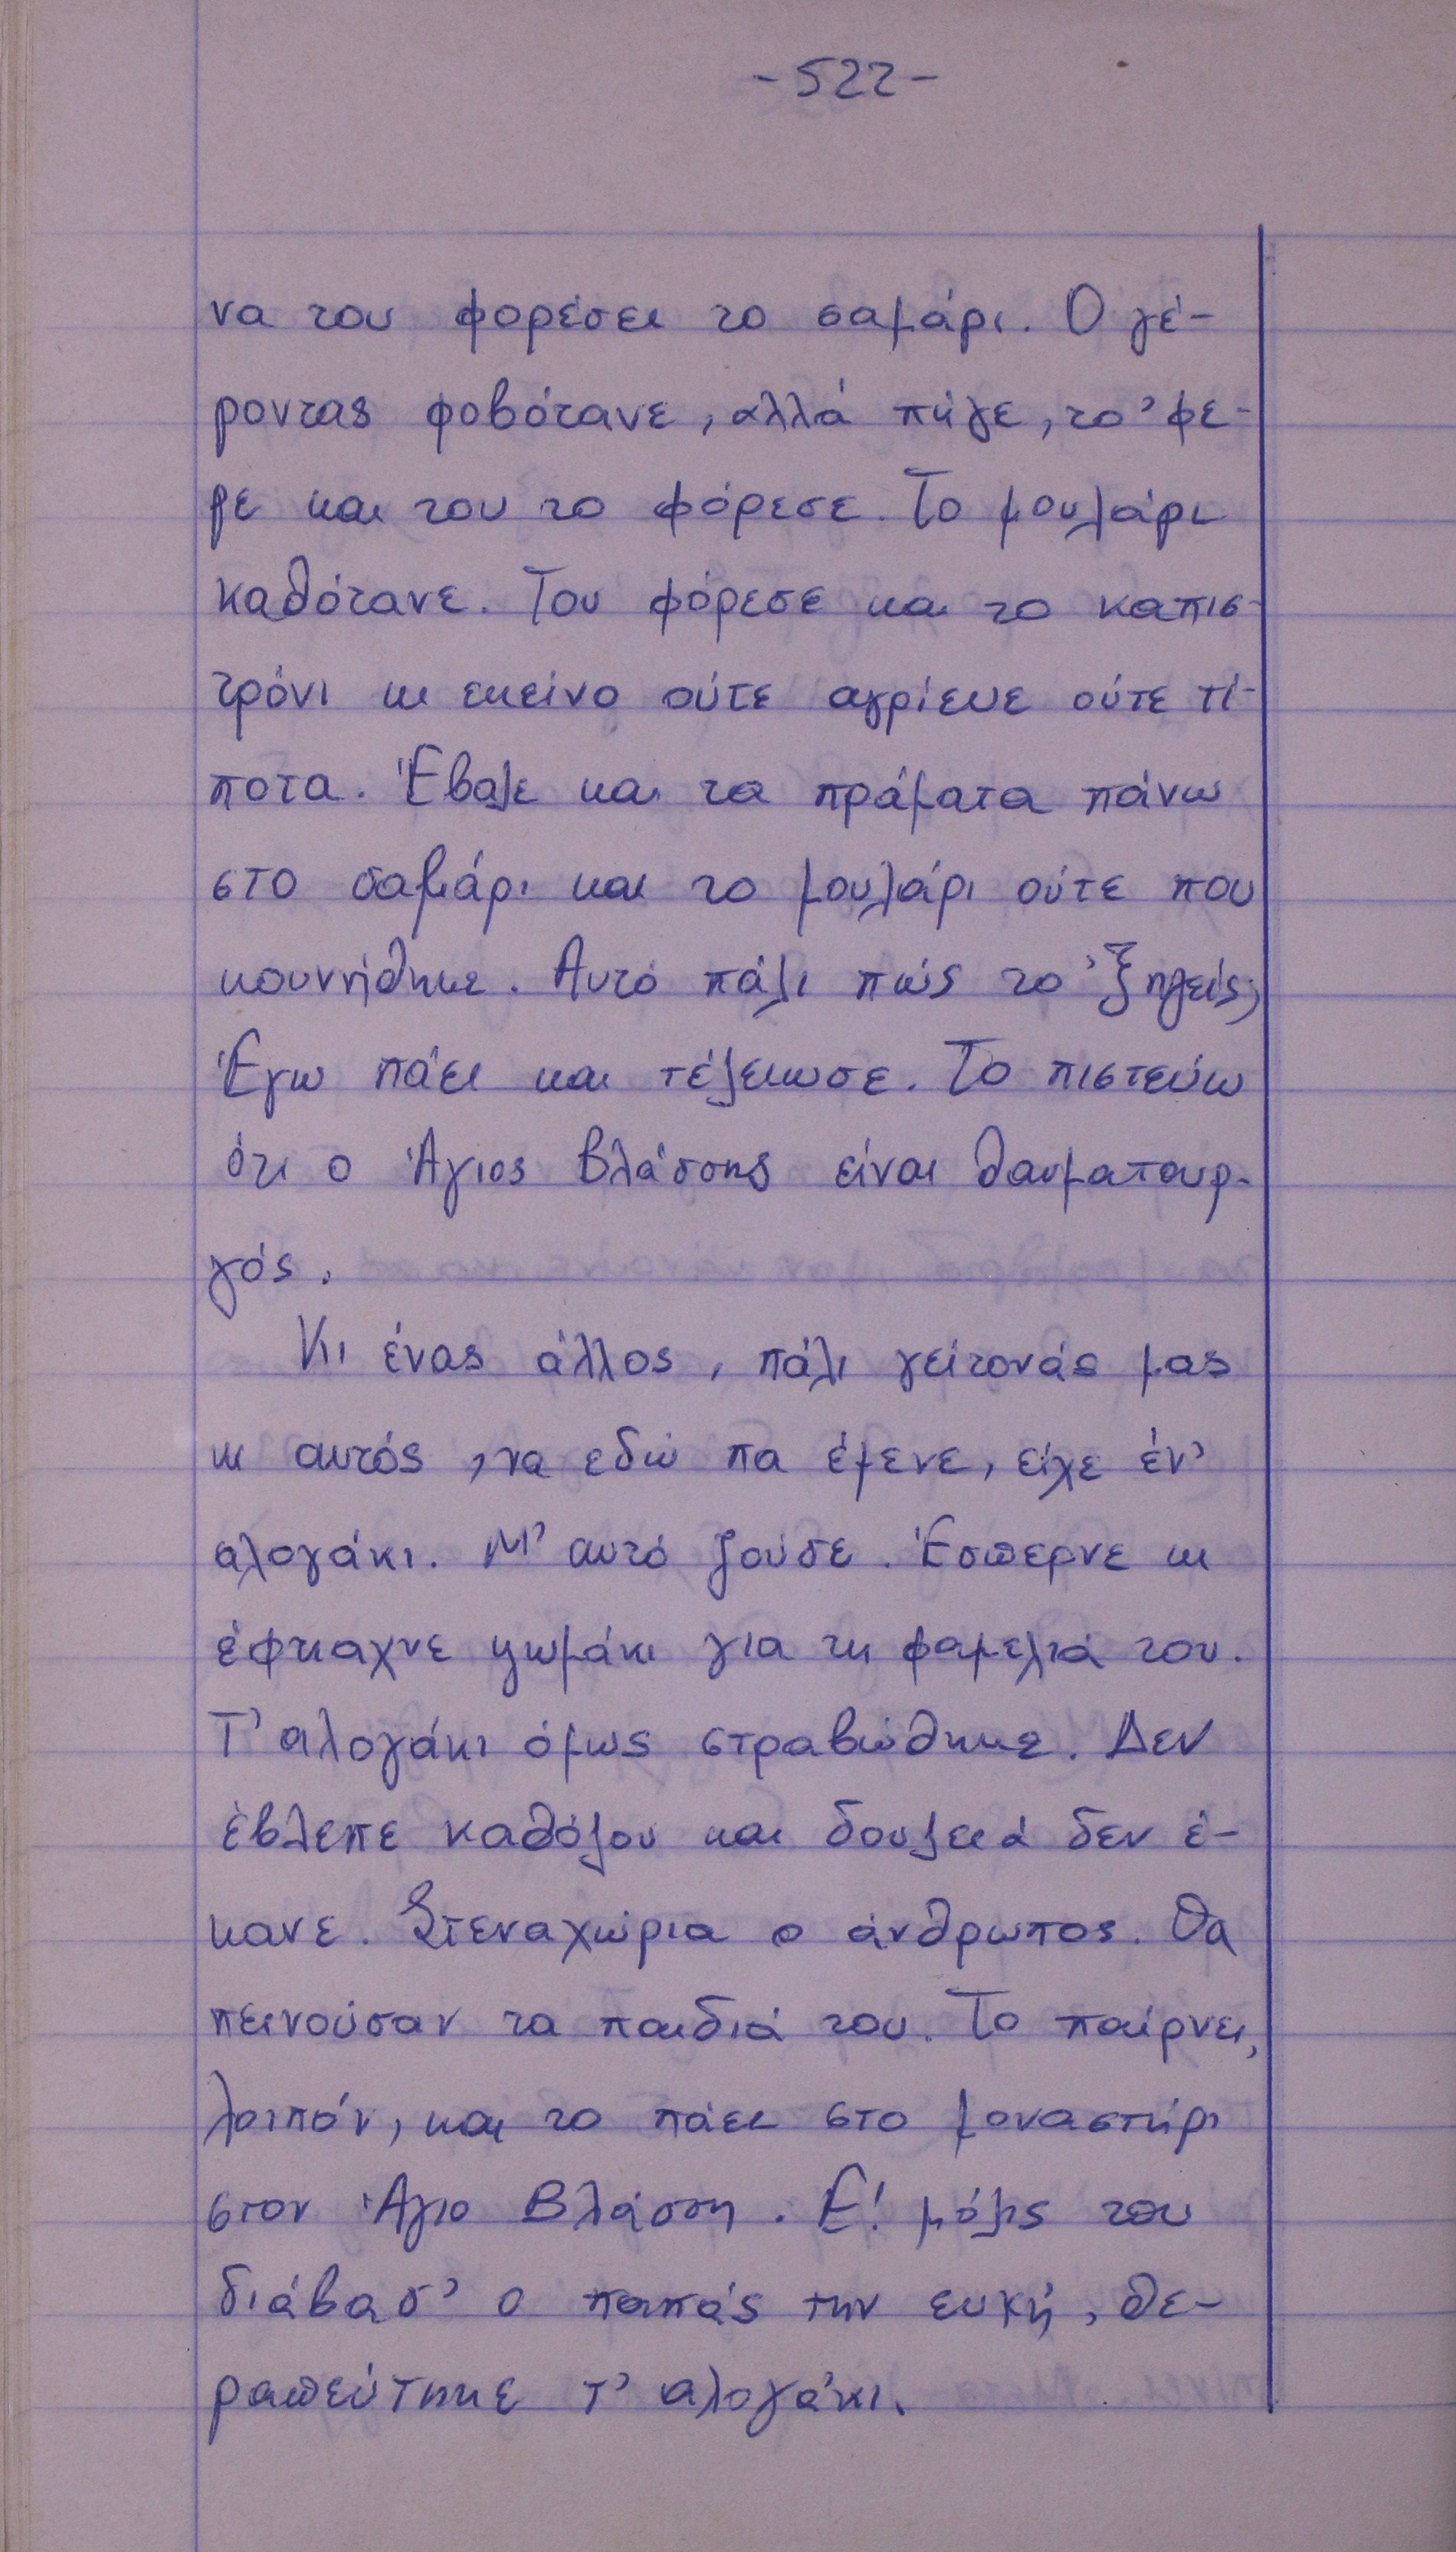 -522-
να του φορέσει το σαμάρι. Ο γέ-
ροντας φοβότανε, αλλά πήγε, το 'φε-
ρε και του το φόρεσε. Το μουλάρι
καθότανε. Του φόρεσε και το καπισ-
τρόνι κι εκείνο ούτε αγρίευε ούτε τί-
ποτα. Έβαλε και τα πράματα πάνω
στο σαμάρι και το μουλάρι ούτε που
κουνήθηκε. Αυτό πάλι πώς το 'ξηγείς;
Έγω πάει και τέλειωσε. Το πιστεύω
ότι ο Άγιος Βλάσσης είναι θαυματουρ-
γός.
Κι ένας άλλος, πάλι γείτονάς μας
κι αυτός, να εδώ πα έμενε, είχε έν'
αλογάκι. Μ' αυτό ζούσε. Έσπερνε κι
έφτιαχνε ψωμάκι για τη φαμελιά του.
Τ' αλογάκι όμως στραβώθηκε. Δεν
έβλεπε καθόλου και δουλειά δεν έ-
κανε. Στεναχώρια ο άνθρωπος. Θα
πεινούσαν τα παιδιά του. Το παίρνει,
λοιπόν, και το πάει στο μοναστήρι
στον Άγιο Βλάσση. Ε! μόλις του
διάβασ' ο παπάς την ευχή, θε-
ραπεύτηκε τ' αλογάκι.